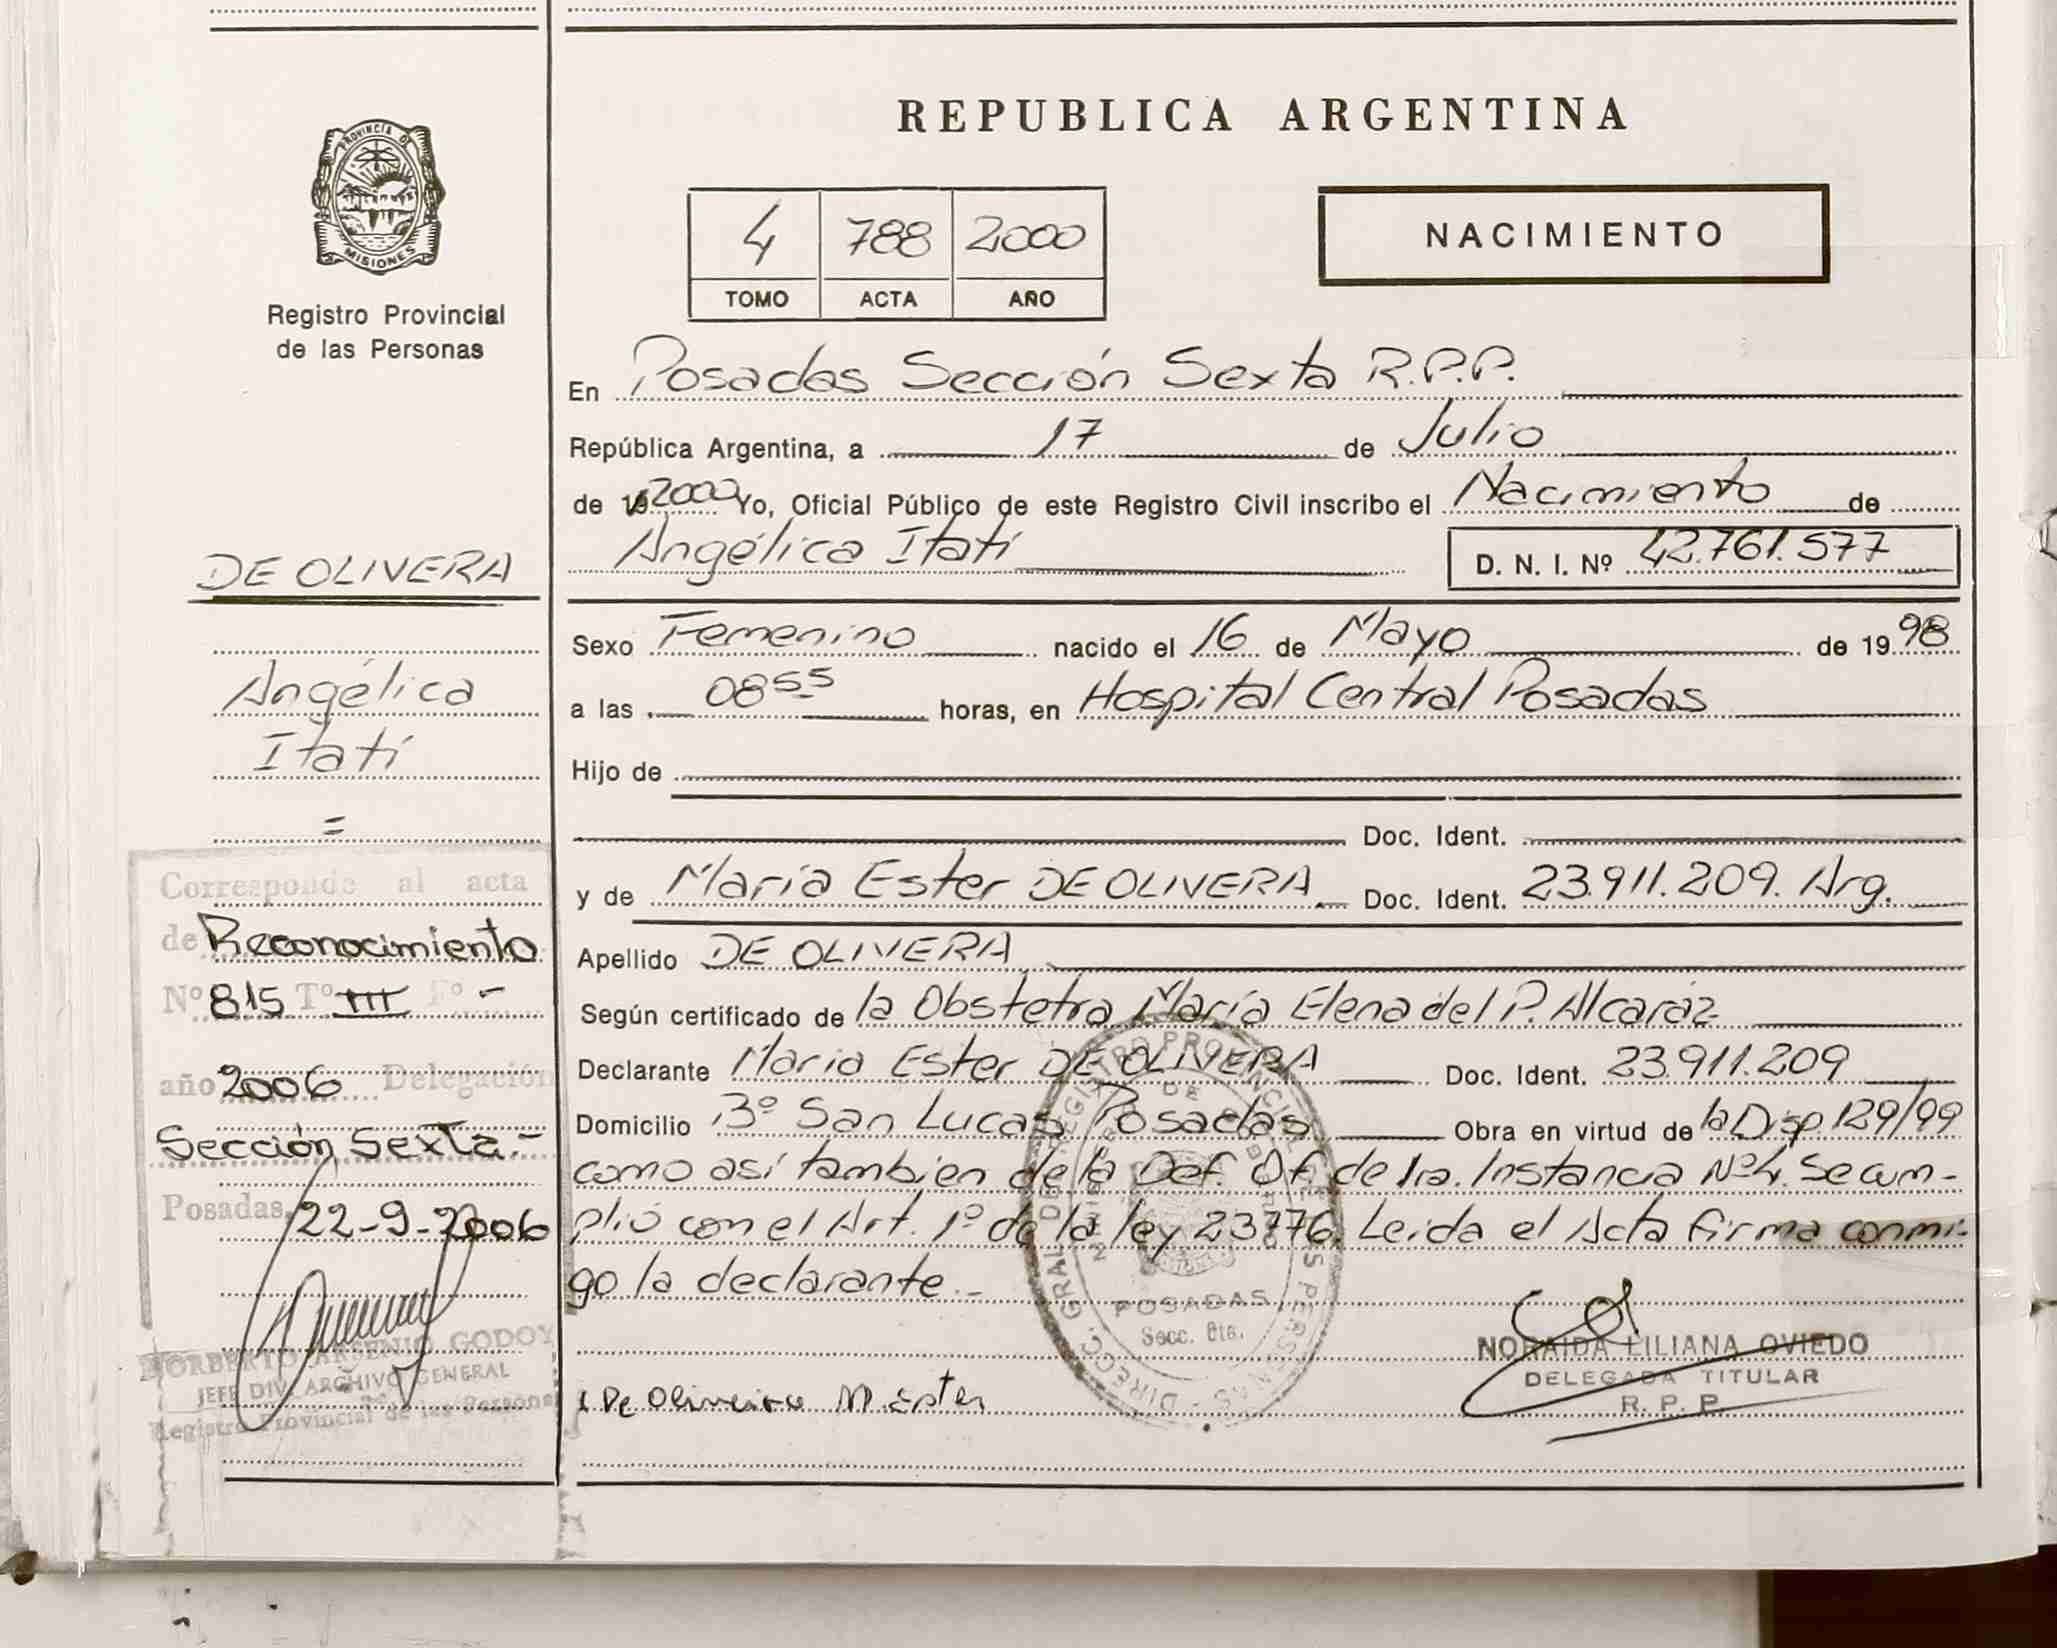 REPUBLICA ARGENTINA
PROVINCIA DE
MISIONES
Registro Provincial
de las Personas
4 788 2000
TOMO ACTA AÑO
NACIMIENTO
En Posadas Sección Sexta R.P.P.
República Argentina, a 17 de Julio
de 19 2000 Yo, Oficial Público de este Registro Civil inscribo el Nacimiento de
Angélica Itatí D. N. I. Nº 42.761.577
Sexo Femenino nacido el 16 de Mayo de 19 98
a las 08 55 horas, en Hospital Central Posadas
Hijo de
Doc. Ident.
y de María Ester DE OLIVERA Doc. Ident. 23.911.209. Arg.
Apellido DE OLIVERA
Según certificado de la Obstetra María Elena del P. Alcaráz
Declarante María Ester DE OLIVERA Doc. Ident. 23.911.209
Domicilio Bº San Lucas Posadas Obra en virtud de la Disp 129/99
como así tambien de la Def. Of. de 1ra. Instancia Nº 4. Se cum-
plió con el Art. 1º de la ley 23776. Leida el Acta firma conmi-
go la declarante.-
De Oliveira M. Ester
NORAIDA LILIANA OVIEDO
DELEGADA TITULAR
R. P. P.
DIRECC. GRAL DEL REGISTRO PROVINCIAL DE LAS PERSONAS
POSADAS
Secc. 6ta.
DE OLIVERA
Angélica
Itatí
=
Corresponde al acta
de Reconocimiento
Nº 815 Tº III Fº -
año 2006 Delegación
Sección Sexta.-
Posadas, 22-9-2006
NORBERTO ARSENIO GODOY
JEFE DIV. ARCHIVO GENERAL
Registro Provincial de las Personas